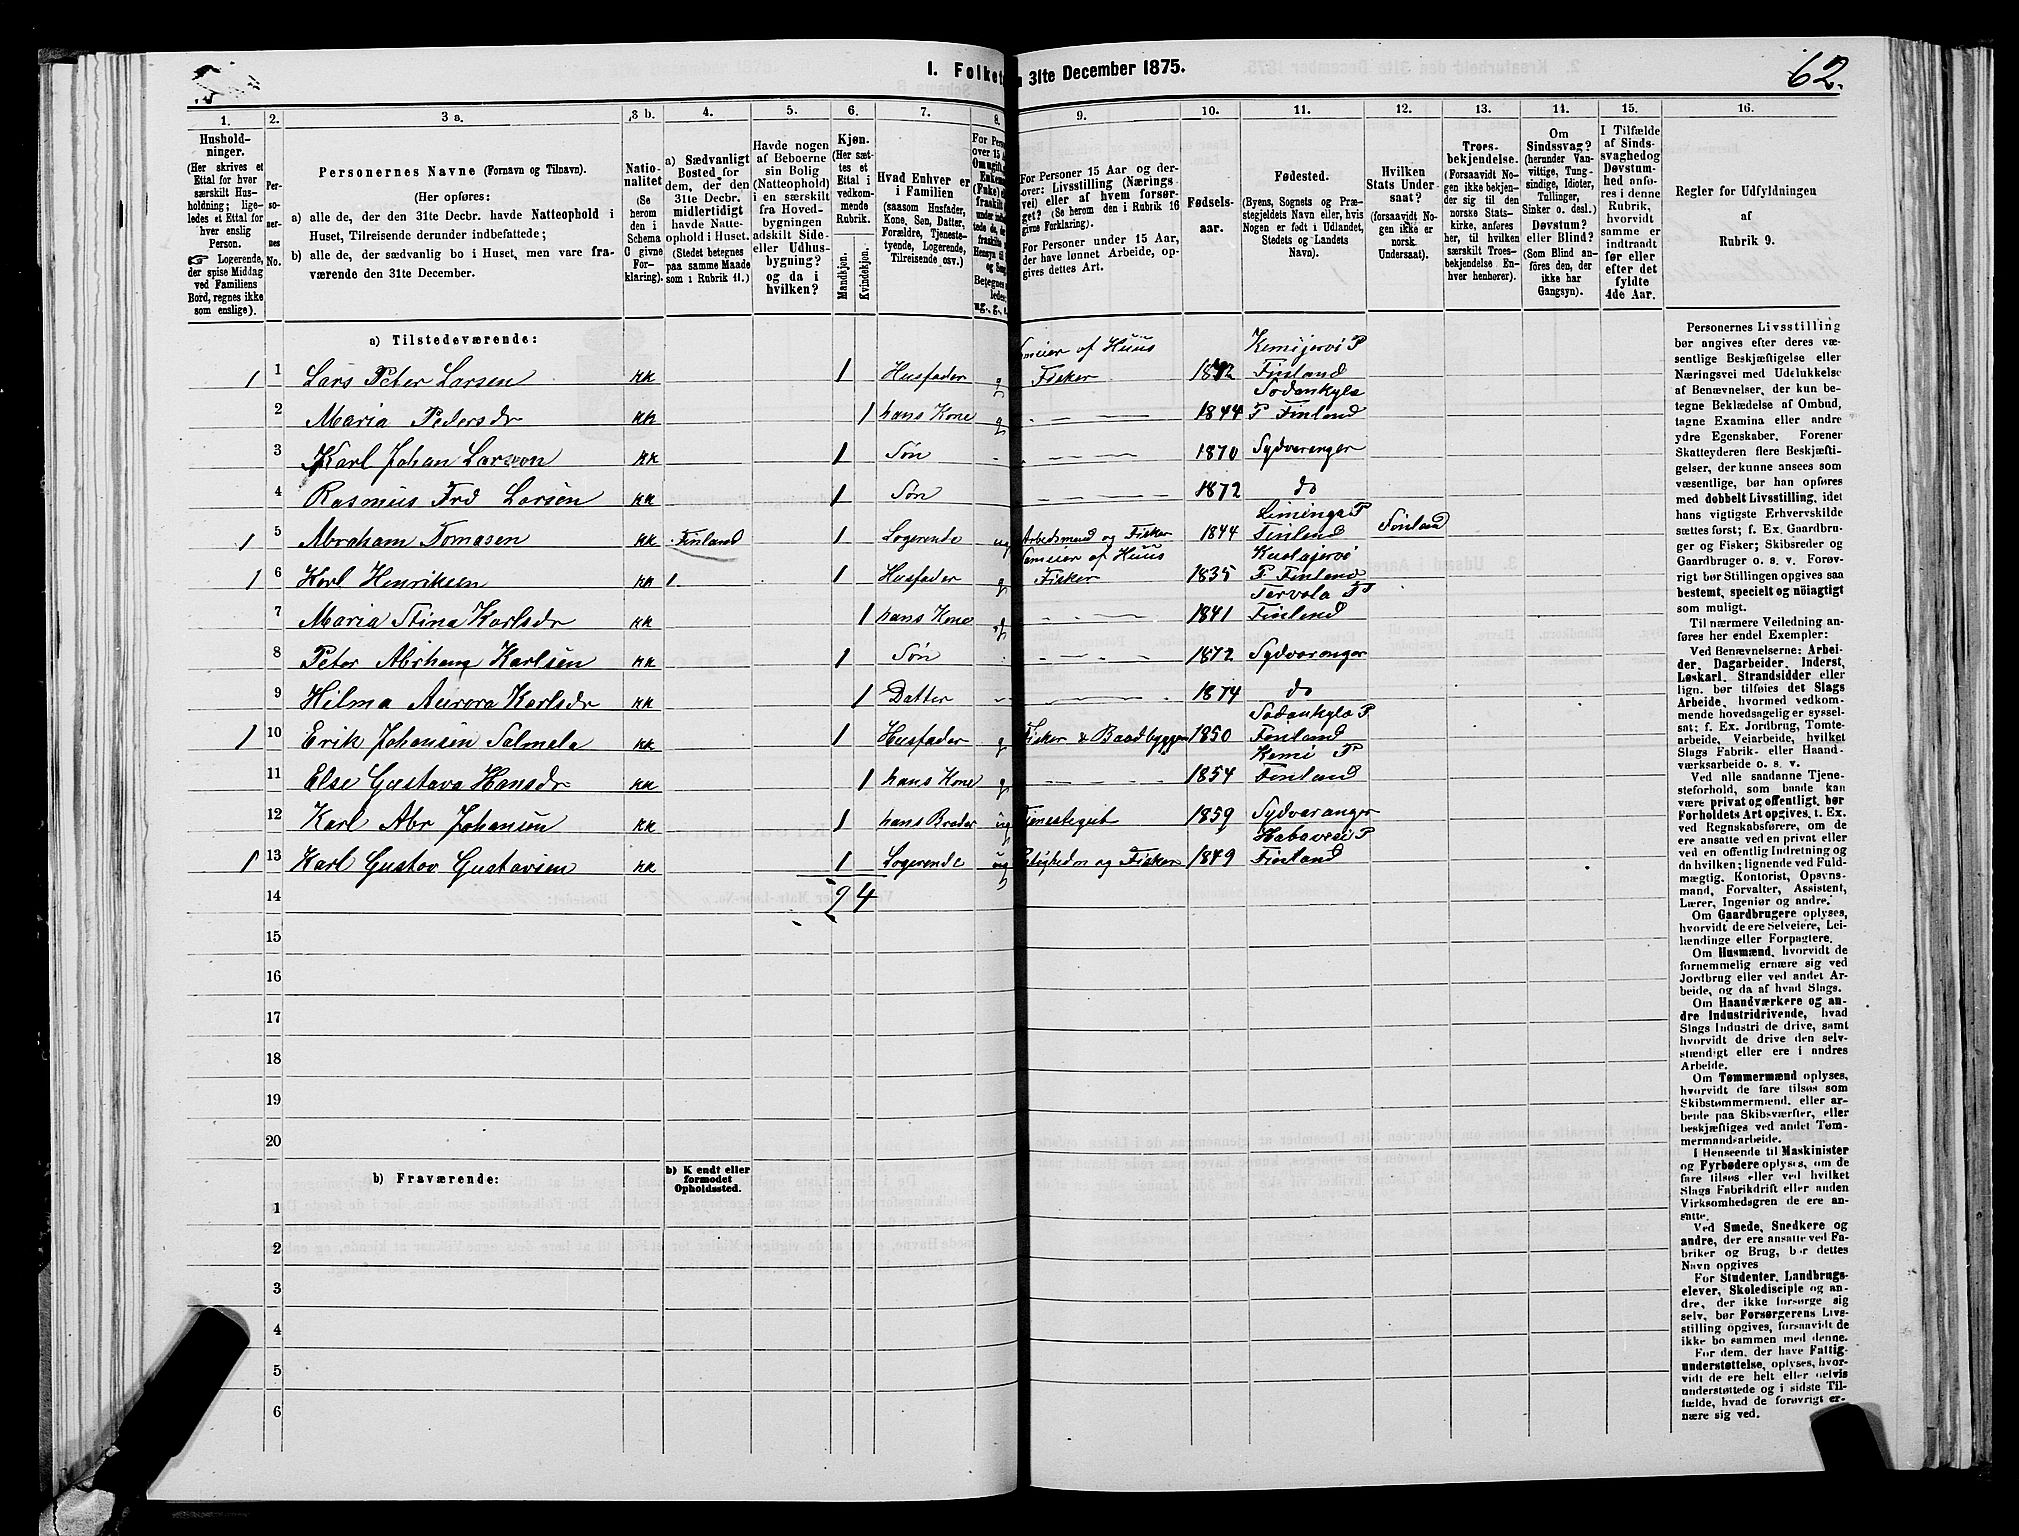 1. Folket
n 31te December 1875.
62.
1. 2. 3 a. 3 b. 4. 5. 6. 7. 8. 9. 10. 11. 12. 13. 14. 15. 16.
Hushold-
ninger.
(Her skrives et
Ettal for hver
særskilt Hus-
holdning; lige-
ledes et Ettal for
hver enslig
Person.
☞ Logerende,
der spise Middag
ved Familiens
Bord, regnes ikke
som enslige).
Per-
so-
ner-
nes
No.
Personernes Navne (Fornavn og Tilnavn).
(Her opføres:
a) alle de, der den 31te Decbr. havde Natteophold i
Huset, Tilreisende derunder indbefattede;
b) alle de, der sædvanlig bo i Huset, men vare fra-
værende den 31te December.
Natio-
nalitet
(Se
herom
den i
Schema
G givne
For-
klaring).
a) Sædvanligt
Bosted for
dem, der den
31te Decbr.
midlertidigt
havde Natte-
ophold i Huset.
(Stedet betegnes
paa samme Maade
som i Rubrik 11.)
Havde nogen
af Beboerne
sin Bolig
(Natteophold)
i en særskilt
fra Hoved-
bygningen
adskilt Side-
eller Udhus-
bygning?
og da i
hvilken?
Kjøn.
(Her sæt-
tes et
Ettal i
vedkom-
mende
Rubrik.
Mandkjøn.
Kvindekjøn.
Hvad Enhver er
i Familien
(saasom Husfader,
Kone, Søn, Datter,
Forældre, Tjeneste-
tyende, Logerende,
Tilreisende osv.)
For Perso
over 15 A
Om ugift,
Enkem
(Fnke) e
fraskilt
under in
tede de,
fraskilt
Hensyn til
og Sen
Betegnes
leder
ug., g.,
For Personer 15 Aar og der-
over: Livsstilling (Nærings
vei) eller af hvem forsør-
get? (Se herom den i Rubrik 16
givne Forklaring).
For Personer under 15 Aar,
der have lønnet Arbeide, op-
gives dettes Art.
Fødsels-
aar.
Fødested.
(Byens, Sognets og Præ-
stegjeldets Navn eller, hvis
Nogen er født i Udlandet,
Stedets og Landets
Navn).
Hvilken
Stats Under-
saat?
(forsaavidt No-
gen ikke er
norsk
Undersaat).
Troes-
bekjendelse.
(Forsaavidt No-
gen ikke bekjen-
der sig til den
norske Stats-
kirke, anføres
her, til hvilken
særskilt Troes-
bekjendelse En-
hver henhører).
Om
Sindssvag?
(herunder Van-
vittige, Tung-
sindige, Idioter,
Tullinger,
Sinker o. desl.)
Døvstum?
eller Blind?
(Som Blind an-
føres den, der
ikke har
Gangsyn).
I Tilfælde
af Sinds-
svaghedog
Døvstum-
hed anfø-
res i denne
Rubrik,
hvorvidt
samme er
indtraadt
før eller
efter det
fyldte
4de Aar.
Regler for Udfyldningen
af
Rubrik 9.
a) Tilstedeværende:
1 1 Lars Peter Larsen kk 1 Husfader g Inneier af Huus Fisker 1842 Kemijervi P Finland
2 Maria Pedersdr kk 1 hans Kone g — — — 1844 Sodankyla P Finland
3 Karl Johan Larsen kk 1 Søn 1870 Sydvaranger
4 Rasmus Frd Larsen kk 1 Søn 1872 do
1 5 Abraham Tomasen kk Finland 1 Logerende ug Arbeidsmand og Fisker 1844 Liminga P Finland Finland
1 6 Karl Henriksen kk 1 Husfader g Inneier af Huus Fisker 1835 Kuolajervi P Finland
7 Maria Stina Karlsdr kk 1 hans Kone g 1841 Tervola P Finland
8 Peter Abrham Karlsen kk 1 Søn 1872 Sydvaranger
9 Hilma Aurora Karlsdr kk 1 Datter 1874 do
1 10 Erik Johansen Salmela kk 1 Husfader g Fisker & Baadbygger 1850 Sodankyla P Finland
11 Else Gustava Hansdr kk 1 hans Kone g 1854 Kemi P Finland
12 Karl Abr Johansen kk 1 hans Broder ug Tjenestegut 1859 Sydvaranger
1 13 Karl Gustav Gustavsen kk 1 Logerende ug og Fisker 1849 Finland
14 9 4
15
16
17
18
19
20
b) Fraværende:
b) Kjendt eller
formodet
Opholdssted.
1
2
3
4
5
6
Personernes Livsstilling
bør angives efter deres væ-
sentlige Beskjæftigelse eller
Næringsvei med Udelukkelse
af Benævnelser, der kun be-
tegne Beklædelse af Ombud,
tagne Examina eller andre
ydre Egenskaber. Forener
Skatteyderen flere Beskjæfti-
gelser, der kunne ansees som
væsentlige, bør han opføres
med dobbelt Livsstilling, idet
hans vigtigste Erhvervskilde
sættes først; f. Ex. Gaardbru-
ger og Fisker; Skibsreder og
Gaardbruger o. s. v. Forøv-
rigt bør Stillingen opgives saa
bestemt, specielt og nöiagtigt
som muligt.
Til nærmere Veiledning an-
føres her endel Exempler:
Ved Benævnelserne: Arbei-
der, Dagarbeider, Inderst,
Løskarl, Strandsidder eller
lign. bør tilføies det Slags
Arbeide, hvormed vedkom-
mende hovedsagelig er syssel-
sat; f. Ex. Jordbrug, Tømte-
arbeide, Veiarbeide, hvilket
Slags Fabrik- eller Haand-
værksarbeide o. s. v.
Ved alle saadanne Tjene-
steforhold, som baade kan
være privat og offentligt, bør
Forholdets Art opgives, t. Ex.
ved Regnskabsførere, om de
ere ansatte ved en privat eller
ved en offentlig Indretning og
da hvilken; lignende ved Fuld-
mægtig, Kontorist, Opsyns-
mand, Forvalter, Assistent,
Lærer, Ingeniør og andre.
Om Gaardbrugere oplyses,
hvorvidt de ere Selveiere, Lei-
lændinge eller Forpagtere.
Om Husmænd, hvorvidt de
fornemmelig ernære sig ved
Jordbrug eller ved andet Ar-
beide, og da af hvad Slags.
Om Haandværkere og an-
dre Industridrivende, hvad
Slags Industri de drive, samt
hvorvidt de drive den selv-
stændigt eller ere i andres
Arbeide.
Om Tømmermænd oplyses,
hvorvidt de fare tilsøs som
Skibstømmermænd, eller ar-
beide paa Skibsværfter, eller
beskjæftiges ved andet Tøm-
mermandsarbeide.
I Henseende til Maskinister
og Fyrbødere oplyses, om de
fare tilsøs eller ved hvilket
Slags Fabrikdrift eller anden
Virksomhedsgren de ere an-
satte.
Ved Smede, Snedkere og
andre, der ere ansatte ved Fa-
briker og Brug, bør dettes
Navn opgives
For Studenter, Landbrugs-
elever, Skoledisciple og an-
dre, der ikke forsørge sig
selv, bør Forsørgerens Livs-
stilling opgives, forsaavidt de
ikke bo sammen med denne.
For dem, der have Fattig-
understøttelse, oplyses, hvor-
vidt de ere helt eller delvis
understøttede og i sidste Til-
fælde, hvad de forøvrigt er-
nære sig ved.